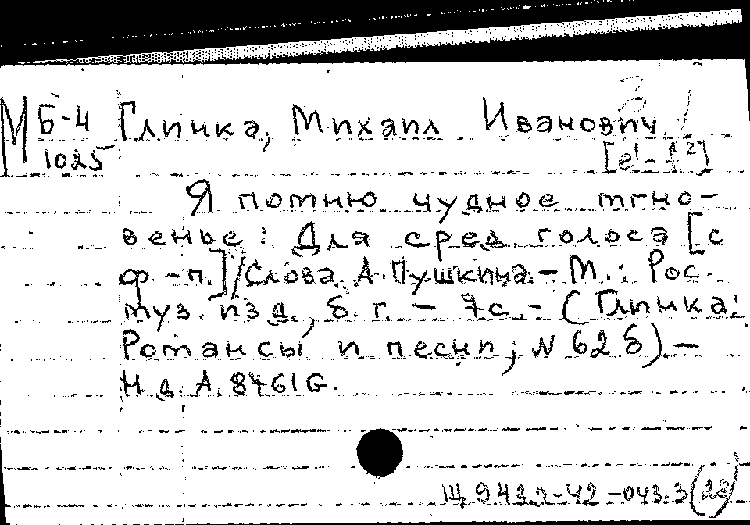 МБ-4 Глинка, Михаил Иванович
1025 [e¹-f²]
Я помню чудное мгно-
венье: Для сред. голоса [с
ф.-п.]/Слова А. Пушкина. – М.: Рос.
муз. изд., б. г. – 7с. – (Глинка:
Романсы и песни; N 62б) –
Н. д. А. 8461 G.
Щ 943.2-42-043.3(28)